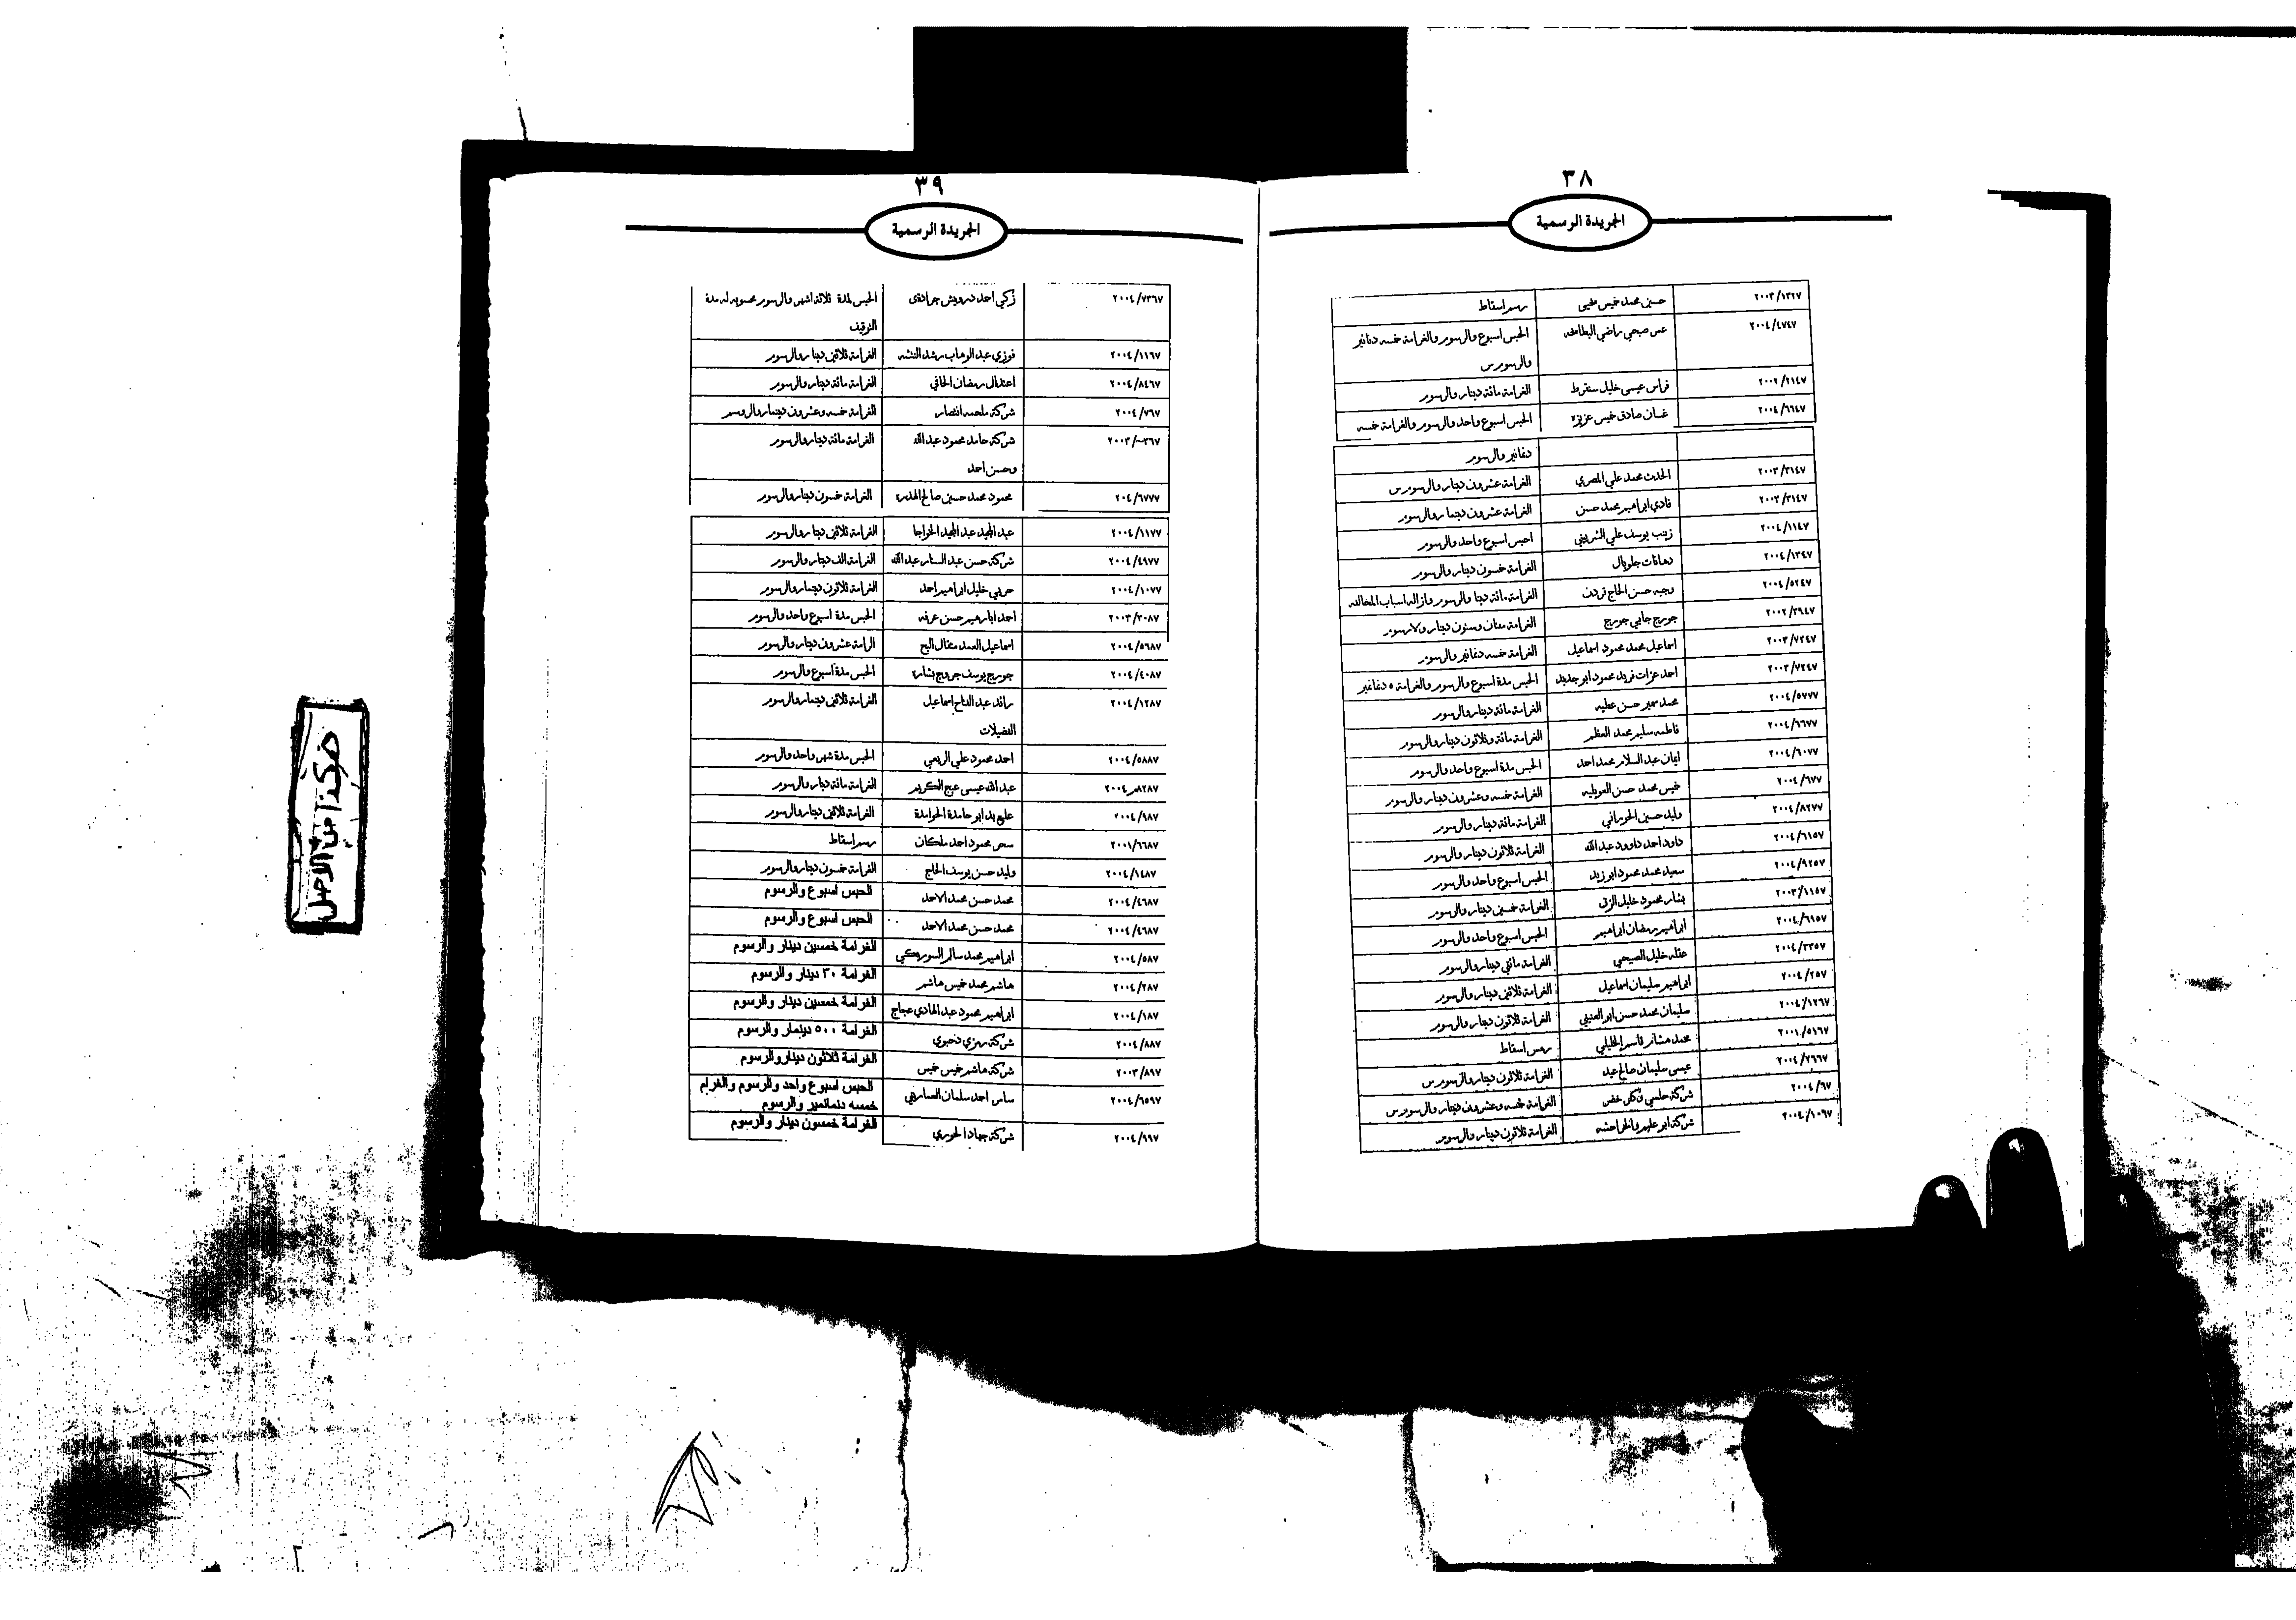 ٣٨
الجريدة الرسمية
٢٠٠٣/١٣٢٧ حسين محمد خميس يحيى رسم اسقاط
٢٠٠٤/٤٧٤٧ عمر صبحي راضي البطامحه الحبس اسبوع والرسوم والغرامة خمسه دنانير
والرسوم س
٢٠٠٢/٢١٤٧ فراس عيسى خليل سنقرط الغرامة مائة دينار والرسوم
٢٠٠٤/٦٦٤٧ غسان صادق خميس عزيزه الحبس اسبوع واحد والرسوم والغرامة خمسه
دنانير والرسوم
٢٠٠٣/٣١٤٧ الحدث محمد علي المصري الغرامة عشرون دينار والرسوم س
٢٠٠٣/٣١٤٧ فادي ابراهيم محمد حسن الغرامة عشرون دينما روالرسوم
٢٠٠٤/١١٤٧ زينب يوسف علي الشربيني احبس اسبوع واحد والرسوم
٢٠٠٤/١٣٤٧ دهانات جلويال الغرامة خمسون دينار والرسوم
٢٠٠٤/٥٢٤٧ وجيه حسن الحاج قردن الغرامة مائة دينا والرسوم وازاله اسباب المخالفه
٢٠٠٢/٣٩٤٧ جورج جابي جورج الغرامة مئتان وستون دينار ولارسوم
٢٠٠٣/٧٢٤٧ اسماعيل محمد محمود اسماعيل الغرامة خمسه دنانير والرسوم
٢٠٠٣/٧٢٤٧ احمد عزات فريد محمود ابو جديد الحبس مدة اسبوع والرسوم والغرامة ٥ دنانير
٢٠٠٤/٥٧٧٧ محمد سمير حسن عطيه الغرامة مائة دينار والرسوم
٢٠٠٤/٦٦٧٧ فاطمه سليم محمد العظم الغرامة مائة وثلاثون دينار والرسوم
٢٠٠٤/٦٠٧٧ ايمان عبد السلام محمد احمد الحبس مدة اسبوع واحد والرسوم
٢٠٠٤/٦٧٧ خميس محمد حسن العويليه الغرامة خمسه وعشرون دينار والرسوم
٢٠٠٤/٨٢٧٧ وليد حسين الحوراني الغرامة مائة دينار والرسوم
٢٠٠٤/٦١٥٧ داود احمد داوود عبد الله الغرامة ثلاثون دينار والرسوم
٢٠٠٤/٩٢٥٧ سعيد محمد محمود ابو زيد الحبس اسبوع واحد والرسوم
٢٠٠٣/١١٥٧ بشار محمود خليل الغرامة خمسين دينار والرسوم
٢٠٠٤/٦٩٥٧ ابراهيم رمضان ابراهيم الحبس اسبوع واحد والرسوم
٢٠٠٤/٣٣٥٧ خليل الصيحي الغرامة مائتي دينار والرسوم
٢٠٠٤/٢٥٧ ابراهيم سليمان اسماعيل الغرامة ثلاثين دينار والرسوم
٢٠٠٤/١٢٦٧ سليمان محمد حسن ابو العنيني الغرامة ثلاثون دينار والرسوم
٢٠٠١/٥١٦٧ محمد هشام قاسم الخليلي رمس اسقاط
٢٠٠٤/٢٦٦٧ عيسى سليمان صالح عيد الغرامة ثلاثون دينار والرسوم س
٢٠٠٤/٦٧ شركة حلمي خضر الغرامة خمسه وعشرون دينار والرسوم س
٢٠٠٤/١٠٦٧ شركة ابو عليم والخراحشه الغرامة ثلاثون دينار والرسوم
٣٩
الجريدة الرسمية
٢٠٠٤/٧٣٦٧ زكي احمد درويش جرادقى الحبس لمدة ثلاثة اشهر والرسوم محسوبه له مدة
التوقيف
٢٠٠٤/١١٦٧ فوزي عبد الوهاب رشد النتشه الغرامة ثلاثين دينار والرسوم
٢٠٠٤/٨٤٦٧ اعتدال رمضان الحافي الغرامة مائة دينار والرسوم
٢٠٠٤/٧٦٧ شركة ملحمه انتصار الغرامة خمسه وعشرون دينمار والوسم
٢٠٠٣/~٣٦٧ شركة حامد محمود عبد الله الغرامة مائة دينار والرسوم
وحسن احمد
٢٠٤/٦٧٧٧ محمود محمد حسين صالح الهدره الغرامة خمسون دينار والرسوم
٢٠٠٤/١١٧٧ عبد المجيد عبد المجيد الخواجا الغرامة ثلاثين دينا روالرسوم
٢٠٠٤/٤٩٧٧ شركة حسن عبد الستار عبد الله الغرامة الف دينار والرسوم
٢٠٠٤/١٠٧٧ حربي خليل ابراهيم احمد الغرامة ثلاثون دينمار والرسوم
٢٠٠٣/٣٠٨٧ احمد ابارهيم حسن عرفه الحبس مدة اسبوع واحد والرسوم
٢٠٠٤/٥٦٨٧ اسماعيل العبد مثقال البح الرامة عشرون دينار والرسوم
٢٠٠٤/٤٠٨٧ جورج يوسف جروج بشاره الحبس مدة اسبوع والرسوم
٢٠٠٤/١٢٨٧ رائد عبد الفتاح اسماعيل الغرامة ثلاثين دينمار والرسوم
الفضيلات
٢٠٠٤/٥٨٨٧ احمد محمود علي الربعي الحبس مدة شهر واحد والرسوم
٨٢٨٧ر٢٠٠٤ عبد الله عيسى عبج الكريم الغرامة مائة دينار والرسوم
٢٠٠٤/٩٨٧ ابو حامدة الحوامدة الغرامة ثلاثين دينار والرسوم
٢٠٠١/٦٦٨٧ سحر محمود احمد ملكان رسم اسقاط
٢٠٠٤/١٤٨٧ وليد حسن يوسف الحاج الغرامة خمسون دينار والرسوم
٢٠٠٤/٤٦٨٧ محمد حسن محمد الاحمد الحبس اسبوع والرسوم
٢٠٠٤/٤٦٨٧ محمد حسن محمد الاحمد الحبس اسبوع والرسوم
٢٠٠٤/٥٨٧ ابراهيم محمد سالم السوريكي الغرامة خمسين دينار والرسوم
٢٠٠٤/٢٨٧ هاشم محمد خميس هاشم الغرامة ٣٠ دينار والرسوم
٢٠٠٤/١٨٧ ابراهيم محمود عبد الهادي عجاج الغرامة خمسين دينار والرسوم
٢٠٠٤/٨٨٧ شركة رمزي نحبوي الغرامة ٥٠٠ دينمار والرسوم
٢٠٠٣/٨٩٧ شركة هاشم خميس خميس الغرامة ثلاثون دينار والرسوم
٢٠٠٤/٦٥٩٧ سامر احمد سلمان العماريني الحبس اسبوع واحد والرسوم والغرام
خمسه دنمانمير والرسوم
٢٠٠٤/٩٩٧ شركة جهاد الحوري الغرامة خمسون دينار والرسوم
هكذا من الاصل